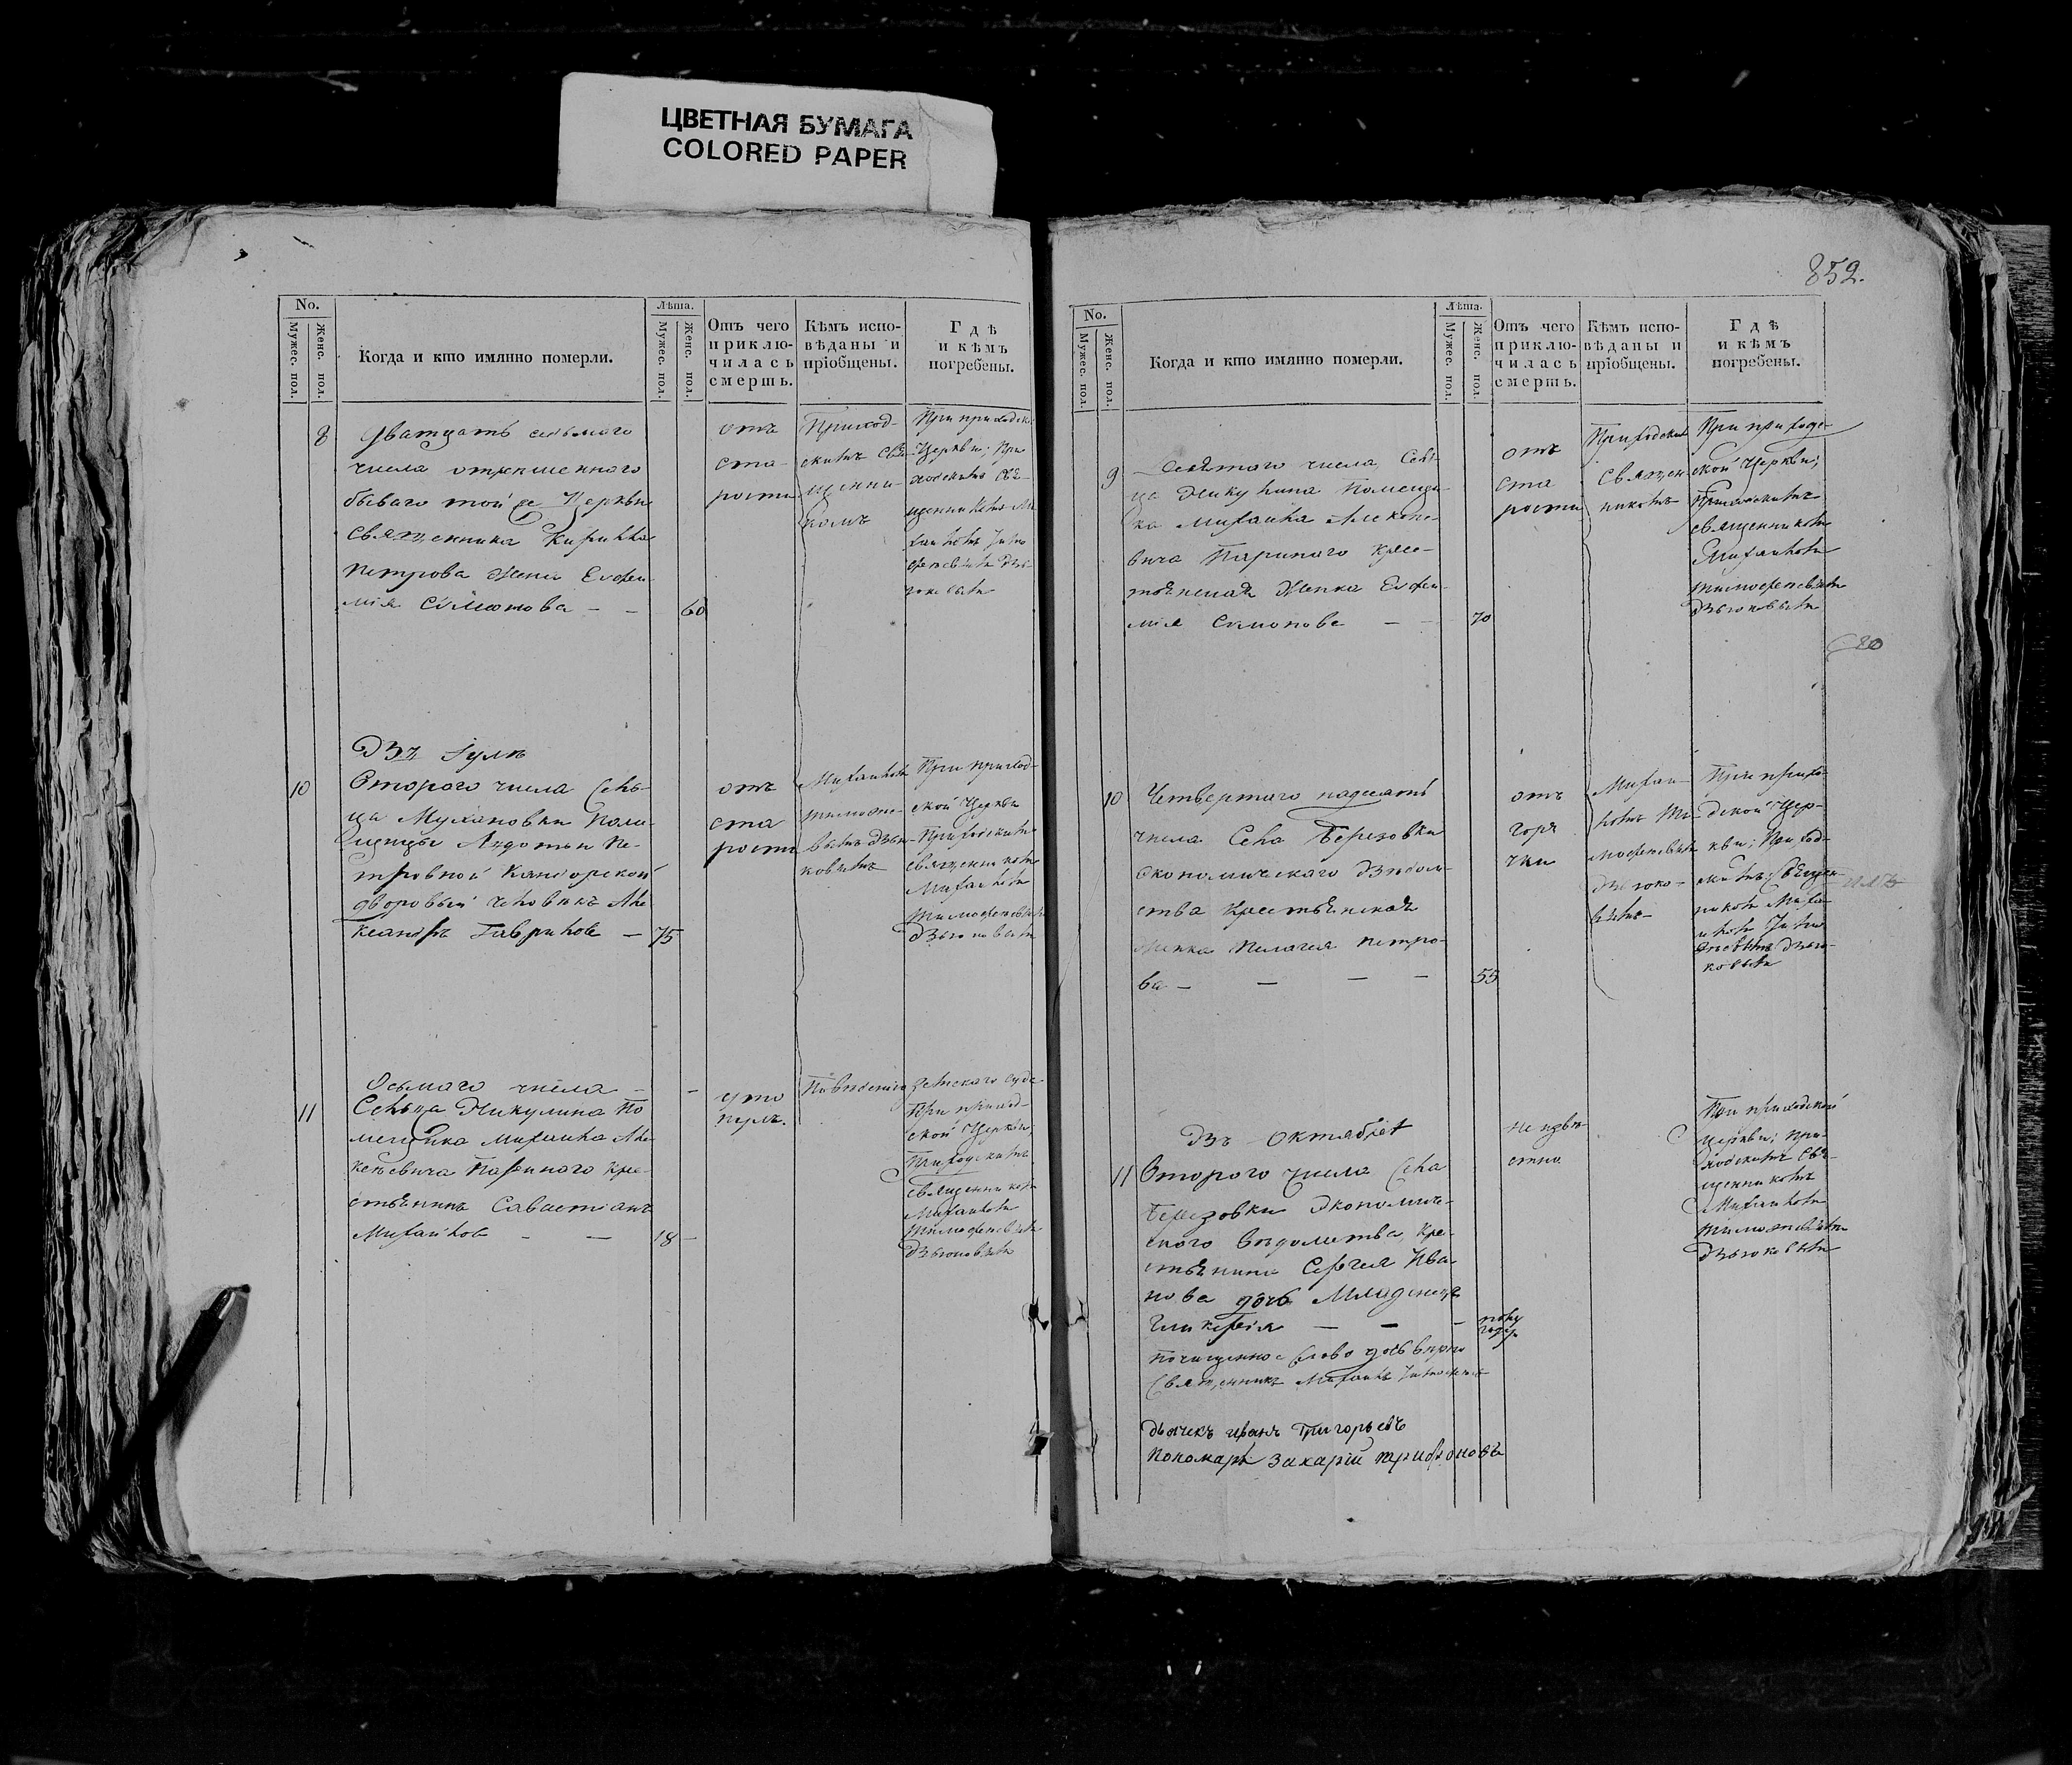 ЦВЕТНАЯ БУМАГА
COLORED PAPER
No.
Мужес. пол.
Женс. пол.
Когда и кто имянно померли.
Лѣта.
Мужес. пол.
Женс. пол.
Отъ чего
приклю-
чилась
смерть.
Кѣмъ испо-
вѣданы и
пріобщены.
Гдѣ
и кѣмъ
погребены.
8
Дватцать седьмаго
числа отрешенного
бываго той же Церкви
Священника Кирилла
Петрова Жена Евфи-
мія Симонова — — 60
отъ
ста-
рости
Приход-
скимъ Свя-
щенни-
комъ
При приходск
Церкви; При
ходскимъ Свя-
щенникомъ Ми
хаиломъ Тимо
феевымъ
Въ Іулѣ
10
Второго числа Сель-
ца Мухановки Поме-
щицы Авдотьи Пе-
тровной
дворовый человекъ Але
ксандръ Гаврилов — 75
отъ
ста
рости
Михаиломъ
Тимофе-
вымъ Дьяк-
ковымъ
При приход-
ской Церкви
Приходскимъ
священникомъ
Михаиломъ
Тимофеевымъ
11
Осьмаго числа —
Сельца Никулина По
мещика Михаила Але
ксевича Париного Кре-
стьянинъ Савастіанъ
Михайлов — — 18 —
уто
перъ.
земскаго суда
При приход-
ской Церкви,
Приходскимъ
священником
Михаиломъ
Тимофеевымъ
852.
No.
Мужес. пол.
Женс. пол.
Когда и кто имянно померли.
Лѣта.
Мужес. пол.
Женс. пол.
Отъ чего
приклю-
чилась
смерть.
Кѣмъ испо-
вѣданы и
пріобщены.
Гдѣ
и кѣмъ
погребены.
9
числа, Сель-
ца Никулина Помещи-
ка Михаила Алексе-
вича Париного Крес-
тьянская Женка Евфи-
мія Симонова — — 70
отъ
ста
рости
Приходским
Священ-
никомъ
При приход-
ской Церкви;
Приходскимъ
священником
Михаиломъ
Тимофеевымъ
20
10
Четвертаго надесять
числа Села Березовки
Економического Ведом-
ства Крестьянская
Женка Пелагея Петро-
ва — — — — 55
отъ
горя
чки
Михаи-
ломъ Ти-
мофеевымъ
При прихо-
дской Цер-
кви; Приход-
скимъ Священ-
никомъ Миха-
иломъ Тимо
Въ Октябрѣ
11
Второго числа Села
Березовки Экономиче-
ского Ведомства, Кре-
стьянина Сергея Ива-
нова дочь Младенец
Гликерія — — —
полу
года
Неизве-
стно
При приходской
Церкви; При-
ходскимъ Свя-
щенникомъ
Михаиломъ
Тимофеевымъ
Почищенное Слово дочь верно
Священникъ Михаилъ Тимофеевъ
Дьячекъ иванъ Григорьевъ
Пономарь Захарій трифоновъ